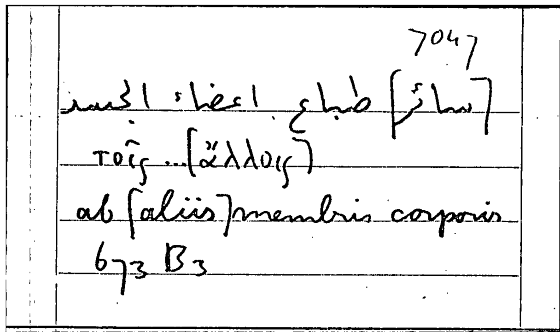 7047
[سائر] طباع اعضاء الجسد
τοῖς ... [ἄλλοις]
ab [aliis] membris corporis
673 B3